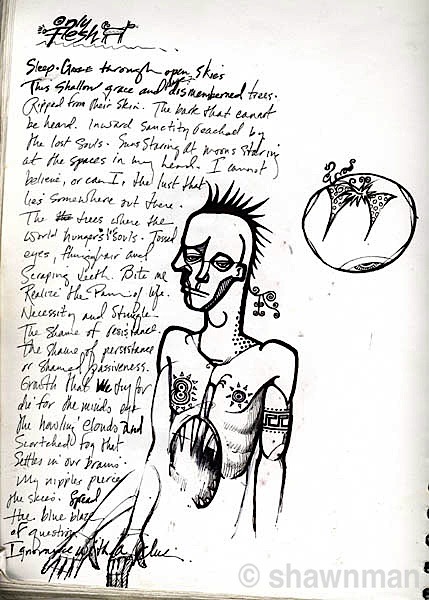 Only
Flesh
Sleep. Gaze through open skies
This shallow grace and dismembered trees.
Ripped from their skin. The bark that cannot
be heard. Inward Sanctity reached by
the lost souls. Suns Staring at moons staring
at the spaces in my hand. I cannot
believe, or can I, the lust that
lies somewhere out there.
The trees where the
world hungers souls. Tossed
eyes, and
Scraping teeth. Bite me
Realize the Pain of life.
Necessity and Struggle.
The Shame of resistance.
The Shame of persistance
or Shamed passiveness.
Growth that We try for
die for the minds eye
the howling clouds and
Scortched fog that
Settles in our brains.
My nipples pierce
the skies. Spread
the blue blaze
of question.
Ignorance with a
© shawnman